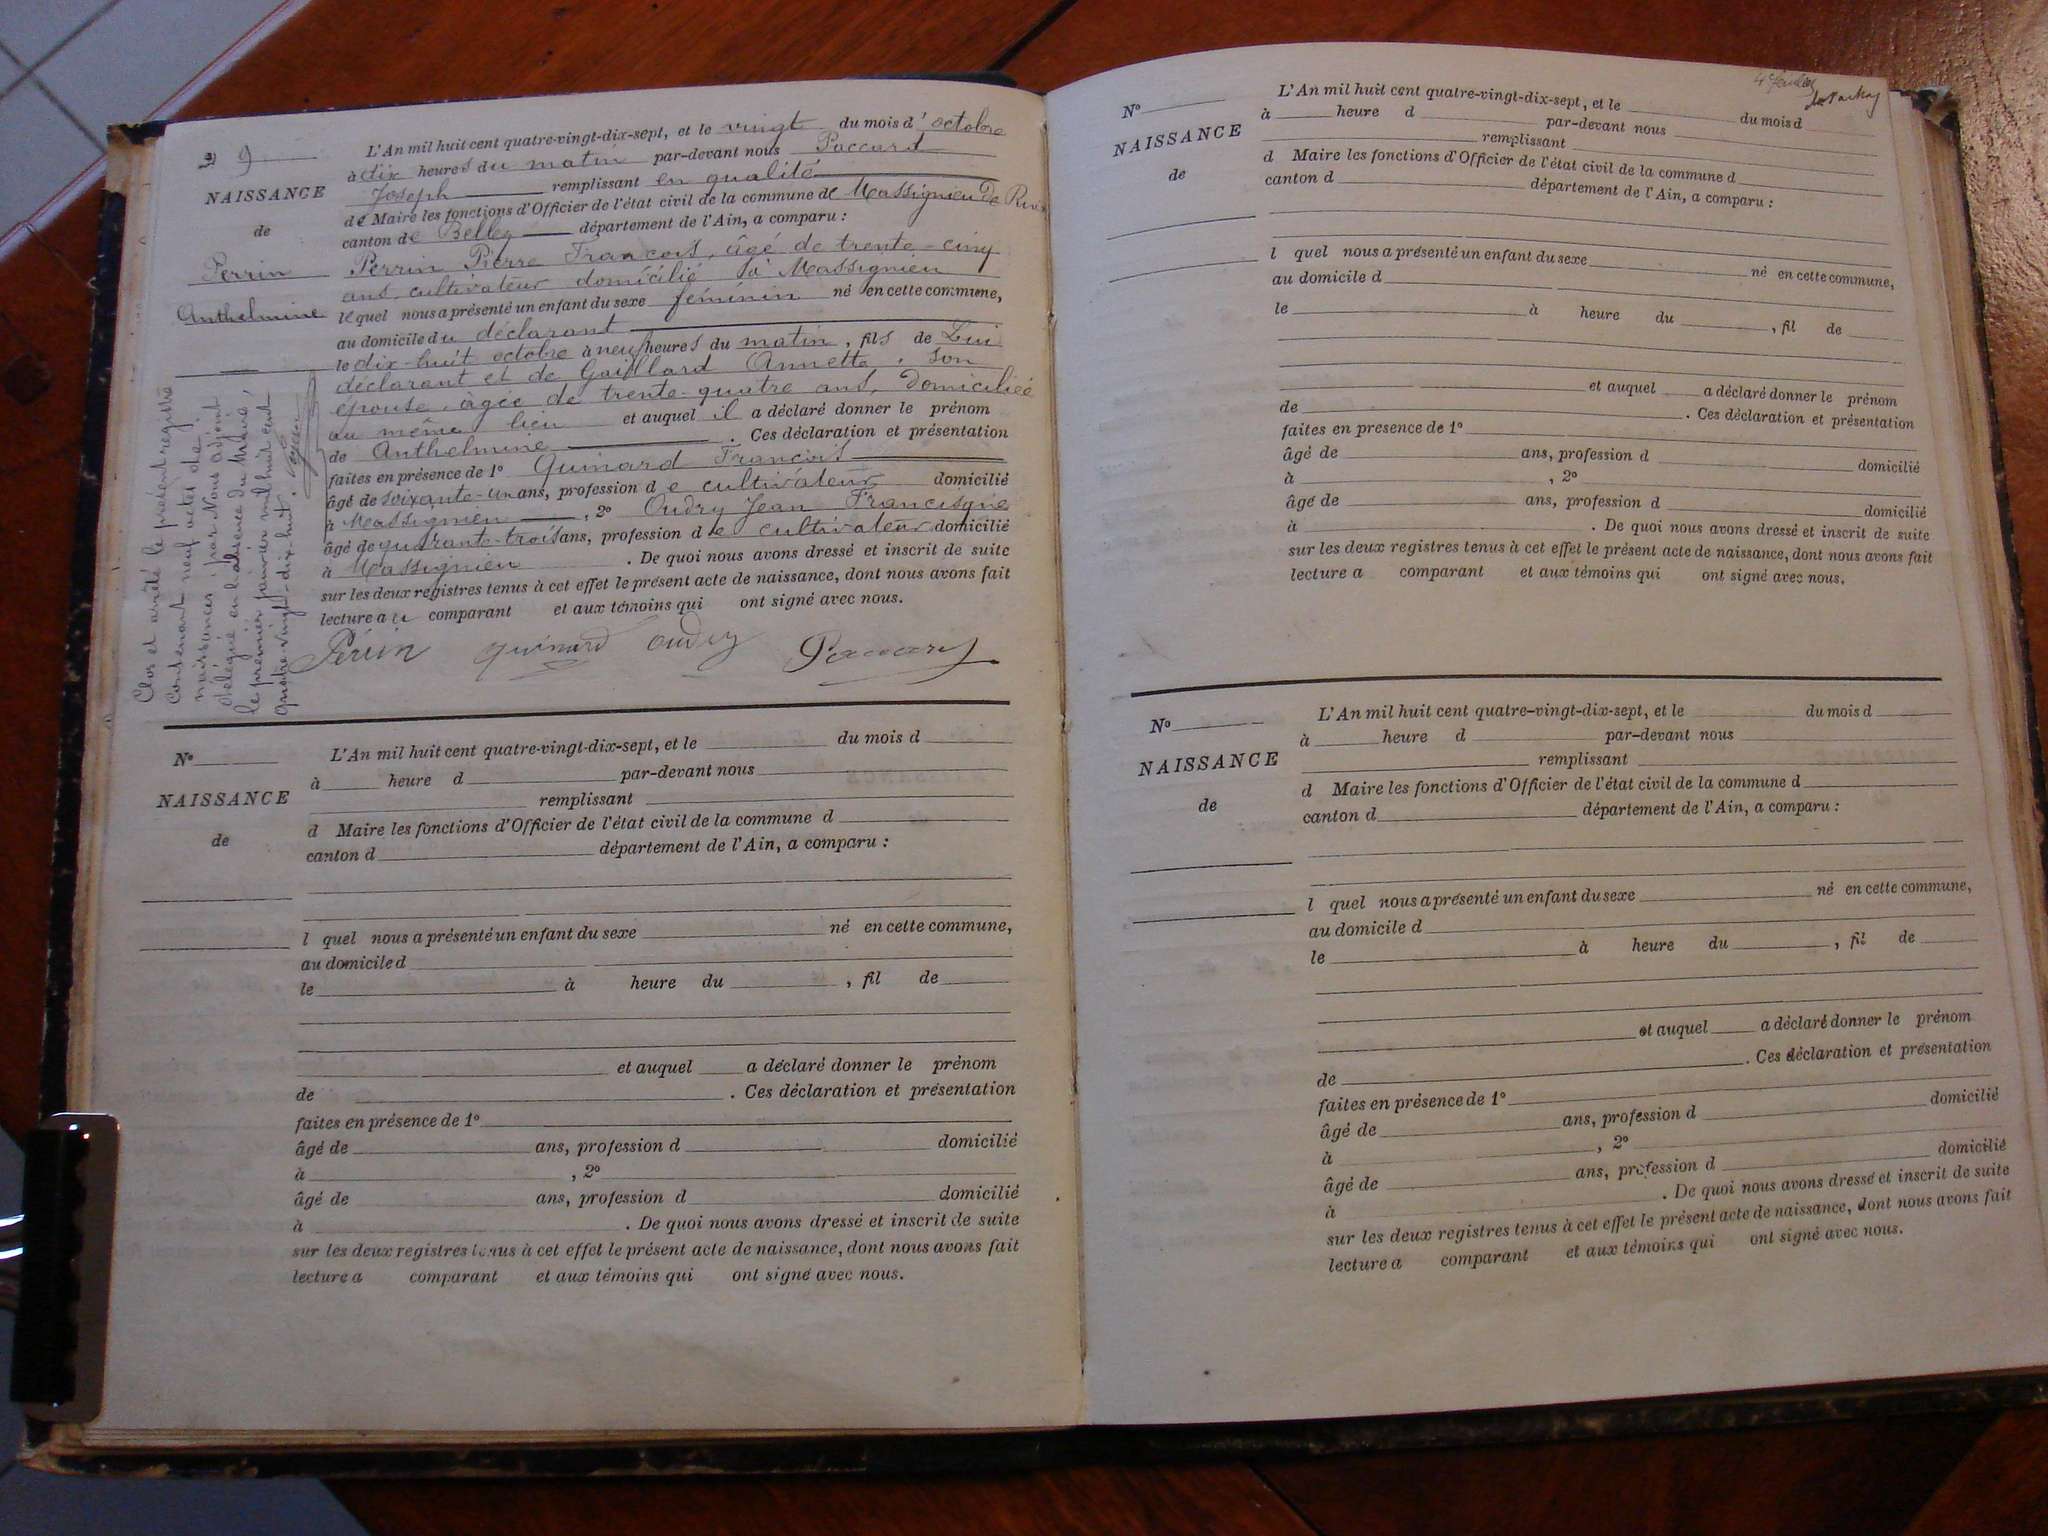 9
NAISSANCE
de
Perrin
Anthelmine
L'An mil huit cent quatre-vingt-dix-sept, et le vingt du mois d'octobre
à dix heures du matin par-devant nous Paccard
Joseph remplissant en qualité
de Maire les fonctions d'Officier de l'état civil de la commune de Massignieu de Rives
canton de Belley département de l'Ain, a comparu :
Perrin Pierre François, âgé de trente-cinq
ans, cultivateur domicilié à Massignieu
lequel nous a présenté un enfant du sexe féminin né en cette commune,
au domicile du déclarant
le dix-huit octobre à neuf heures du matin, fils de Lui
déclarant et de Gaillard Annette, son
épouse, âgée de trente-quatre ans, domiciliée
au même lieu et auquel il a déclaré donner le prénom
de Anthelmine. Ces déclaration et présentation
faites en présence de 1º Guinard François
âgé de soixante-un ans, profession de cultivateur domicilié
à Massignieu, 2º Oudry Jean Francisque
âgé de quarante-trois ans, profession de cultivateur domicilié
à Massignieu. De quoi nous avons dressé et inscrit de suite
sur les deux registres tenus à cet effet le présent acte de naissance, dont nous avons fait
lecture au comparant et aux témoins qui ont signé avec nous.
Périn Guinard Oudry Paccard
Clos et arrêté le présent registre
contenant neuf actes de
naissances par Nous adjoint
délégué en l'absence du Maire,
le premier janvier mil huit cent
quatre-vingt-dix-huit.
Nº
NAISSANCE
de
L'An mil huit cent quatre-vingt-dix-sept, et le du mois d
à heure d par-devant nous
remplissant
d Maire les fonctions d'Officier de l'état civil de la commune d
canton d département de l'Ain, a comparu :
l quel nous a présenté un enfant du sexe né en cette commune,
au domicile d
le à heure du , fil de
et auquel a déclaré donner le prénom
de . Ces déclaration et présentation
faites en présence de 1º
âgé de ans, profession d domicilié
à , 2º
âgé de ans, profession d domicilié
à . De quoi nous avons dressé et inscrit de suite
sur les deux registres tenus à cet effet le présent acte de naissance, dont nous avons fait
lecture a comparant et aux témoins qui ont signé avec nous.
Nº
NAISSANCE
de
L'An mil huit cent quatre-vingt-dix-sept, et le du mois d
à heure d par-devant nous
remplissant
d Maire les fonctions d'Officier de l'état civil de la commune d
canton d département de l'Ain, a comparu :
l quel nous a présenté un enfant du sexe né en cette commune,
au domicile d
le à heure du , fil de
et auquel a déclaré donner le prénom
de . Ces déclaration et présentation
faites en presence de 1º
âgé de ans, profession d domicilié
à , 2º
âgé de ans, profession d domicilié
à . De quoi nous avons dressé et inscrit de suite
sur les deux registres tenus à cet effet le présent acte de naissance, dont nous avons fait
lecture a comparant et aux témoins qui ont signé avec nous.
Nº
NAISSANCE
de
L'An mil huit cent quatre-vingt-dix-sept, et le du mois d
à heure d par-devant nous
remplissant
d Maire les fonctions d'Officier de l'état civil de la commune d
canton d département de l'Ain, a comparu :
l quel nous a présenté un enfant du sexe né en cette commune,
au domicile d
le à heure du , fil de
et auquel a déclaré donner le prénom
de . Ces déclaration et présentation
faites en présence de 1º
âgé de ans, profession d domicilié
à , 2º
âgé de ans, profession d domicilié
à . De quoi nous avons dressé et inscrit de suite
sur les deux registres tenus à cet effet le présent acte de naissance, dont nous avons fait
lecture a comparant et aux témoins qui ont signé avec nous.